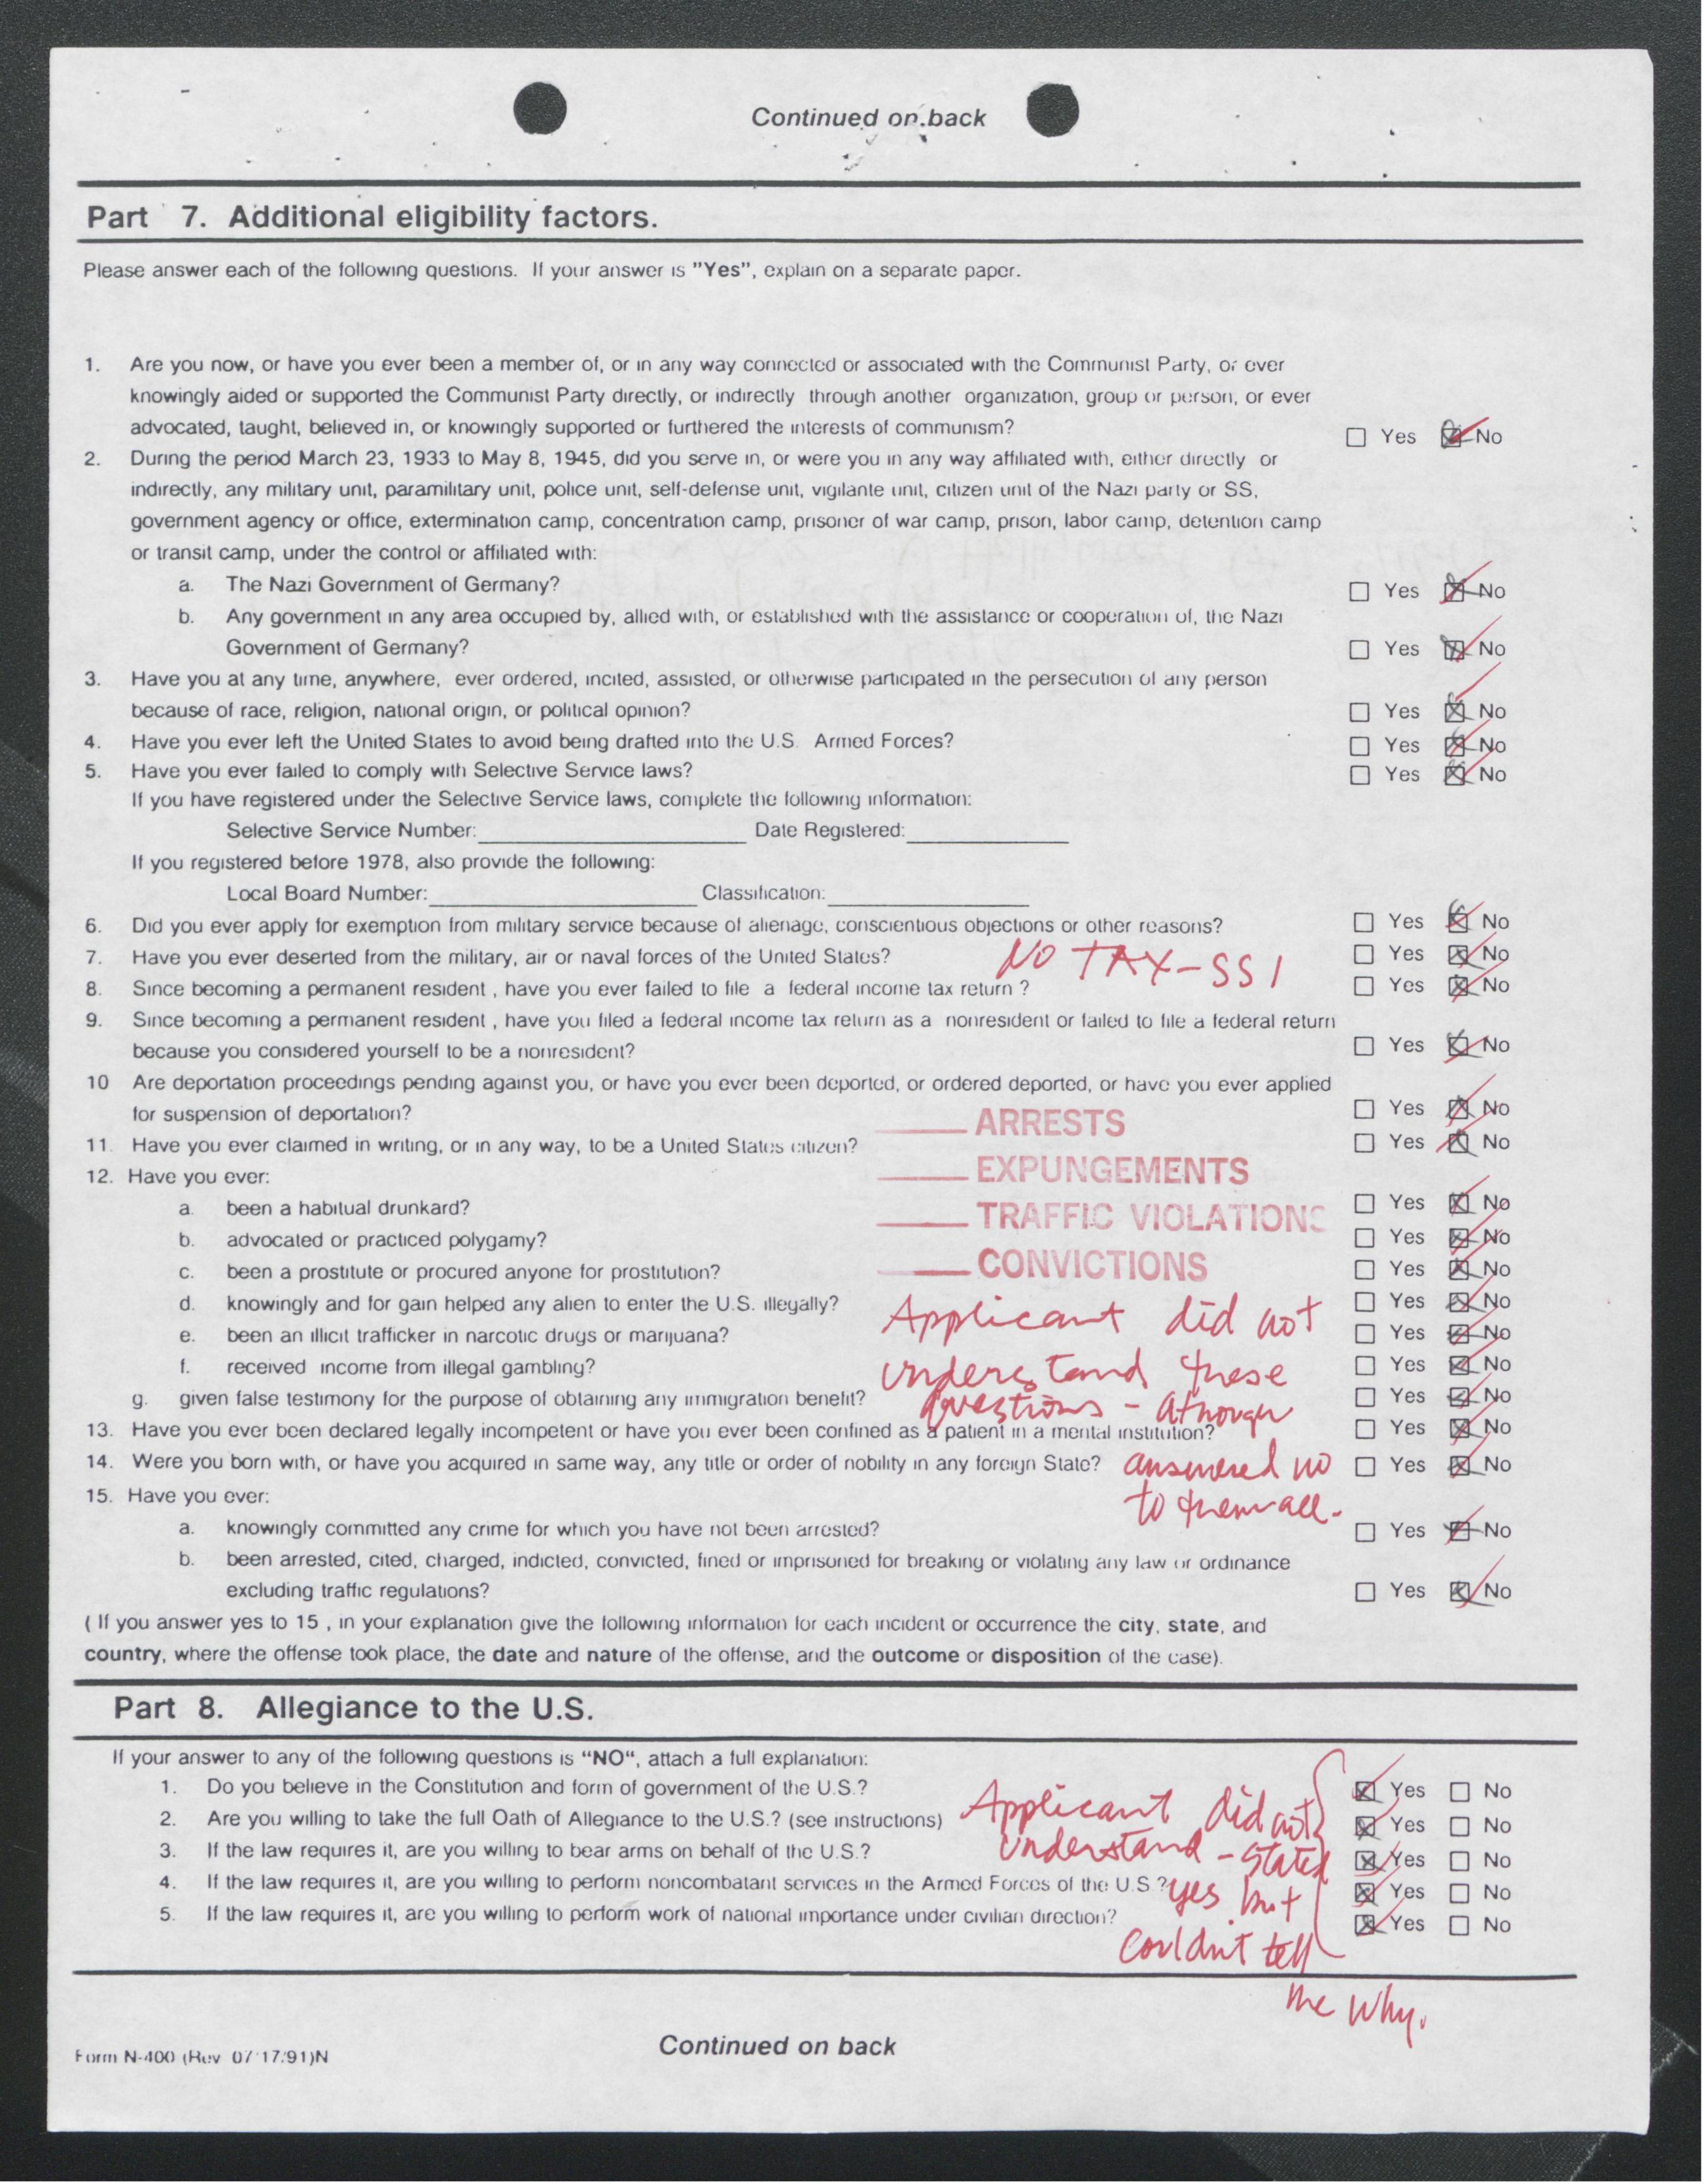 Continued on back
Part 7. Additional eligibility factors.
Please answer each of the following questions. If your answer is "Yes", explain on a separate paper.
1. Are you now, or have you ever been a member of, or in any way connected or associated with the Communist Party, or ever
knowingly aided or supported the Communist Party directly, or indirectly through another organization, group or person, or ever
advocated, taught, believed in, or knowingly supported or furthered the interests of communism? Yes No
2. During the period March 23, 1933 to May 8, 1945, did you serve in, or were you in any way affiliated with, either directly or
indirectly, any military unit, paramilitary unit, police unit, self-defense unit, vigilante unit, citizen unit of the Nazi party or SS,
government agency or office, extermination camp, concentration camp, prisoner of war camp, prison, labor camp, detention camp
or transit camp, under the control or affiliated with:
a. The Nazi Government of Germany? Yes No
b. Any government in any area occupied by, allied with, or established with the assistance or cooperation of, the Nazi
Government of Germany? Yes No
3. Have you at any time, anywhere, ever ordered, incited, assisted, or otherwise participated in the persecution of any person
because of race, religion, national origin, or political opinion? Yes No
4. Have you ever left the United States to avoid being drafted into the U.S. Armed Forces? Yes No
5. Have you ever failed to comply with Selective Service laws? Yes No
If you have registered under the Selective Service laws, complete the following information:
Selective Service Number: Date Registered:
If you registered before 1978, also provide the following:
Local Board Number: Classification:
6. Did you ever apply for exemption from military service because of alienage, conscientious objections or other reasons? Yes No
7. Have you ever deserted from the military, air or naval forces of the United States? Yes No
NO TAX-SSI
8. Since becoming a permanent resident , have you ever failed to file a federal income tax return ? Yes No
9. Since becoming a permanent resident , have you filed a federal income tax return as a nonresident or failed to file a federal return
because you considered yourself to be a nonresident? Yes No
10 Are deportation proceedings pending against you, or have you ever been deported, or ordered deported, or have you ever applied
for suspension of deportation? Yes No
ARRESTS
11. Have you ever claimed in writing, or in any way, to be a United States citizen? Yes No
12. Have you ever:
EXPUNGEMENTS
a. been a habitual drunkard? Yes No
TRAFFIC VIOLATIONS
b. advocated or practiced polygamy? Yes No
c. been a prostitute or procured anyone for prostitution? Yes No
CONVICTIONS
d. knowingly and for gain helped any alien to enter the U.S. illegally? Yes No
Applicant did not
e. been an illicit trafficker in narcotic drugs or marijuana? Yes No
f. received income from illegal gambling? Yes No
understand these
g. given false testimony for the purpose of obtaining any immigration benefit? Yes No
questions - athough
13. Have you ever been declared legally incompetent or have you ever been confined as a patient in a mental institution? Yes No
14. Were you born with, or have you acquired in same way, any title or order of nobility in any foreign State? Yes No
answered no
15. Have you ever:
to them all.
a. knowingly committed any crime for which you have not been arrested? Yes No
b. been arrested, cited, charged, indicted, convicted, fined or imprisoned for breaking or violating any law or ordinance
excluding traffic regulations? Yes No
( If you answer yes to 15 , in your explanation give the following information for each incident or occurrence the city, state, and
country, where the offense took place, the date and nature of the offense, and the outcome or disposition of the case).
Part 8. Allegiance to the U.S.
If your answer to any of the following questions is "NO", attach a full explanation:
1. Do you believe in the Constitution and form of government of the U.S.? Yes No
2. Are you willing to take the full Oath of Allegiance to the U.S.? (see instructions) Yes No
Applicant did not
3. If the law requires it, are you willing to bear arms on behalf of the U.S.? Yes No
understand - stated
4. If the law requires it, are you willing to perform noncombatant services in the Armed Forces of the U.S.? Yes No
yes but
5. If the law requires it, are you willing to perform work of national importance under civilian direction? Yes No
couldn't tell
me why.
Continued on back
Form N-400 (Rev 07/17/91)N